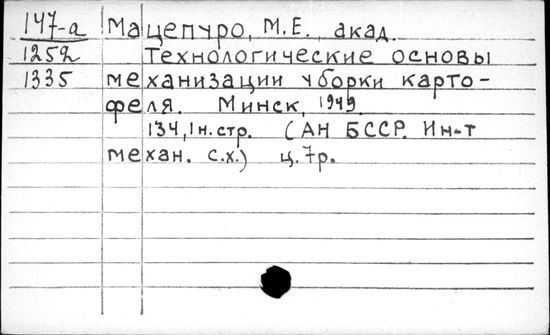 147-а Мацепуро, М.Е. акад.
1252 Технологические основы
1335 механизации уборки карто-
феля. Минск, 1949.
134,1н.стр. (АН БССР. Ин-т
механ. с.х.) ц.7р.